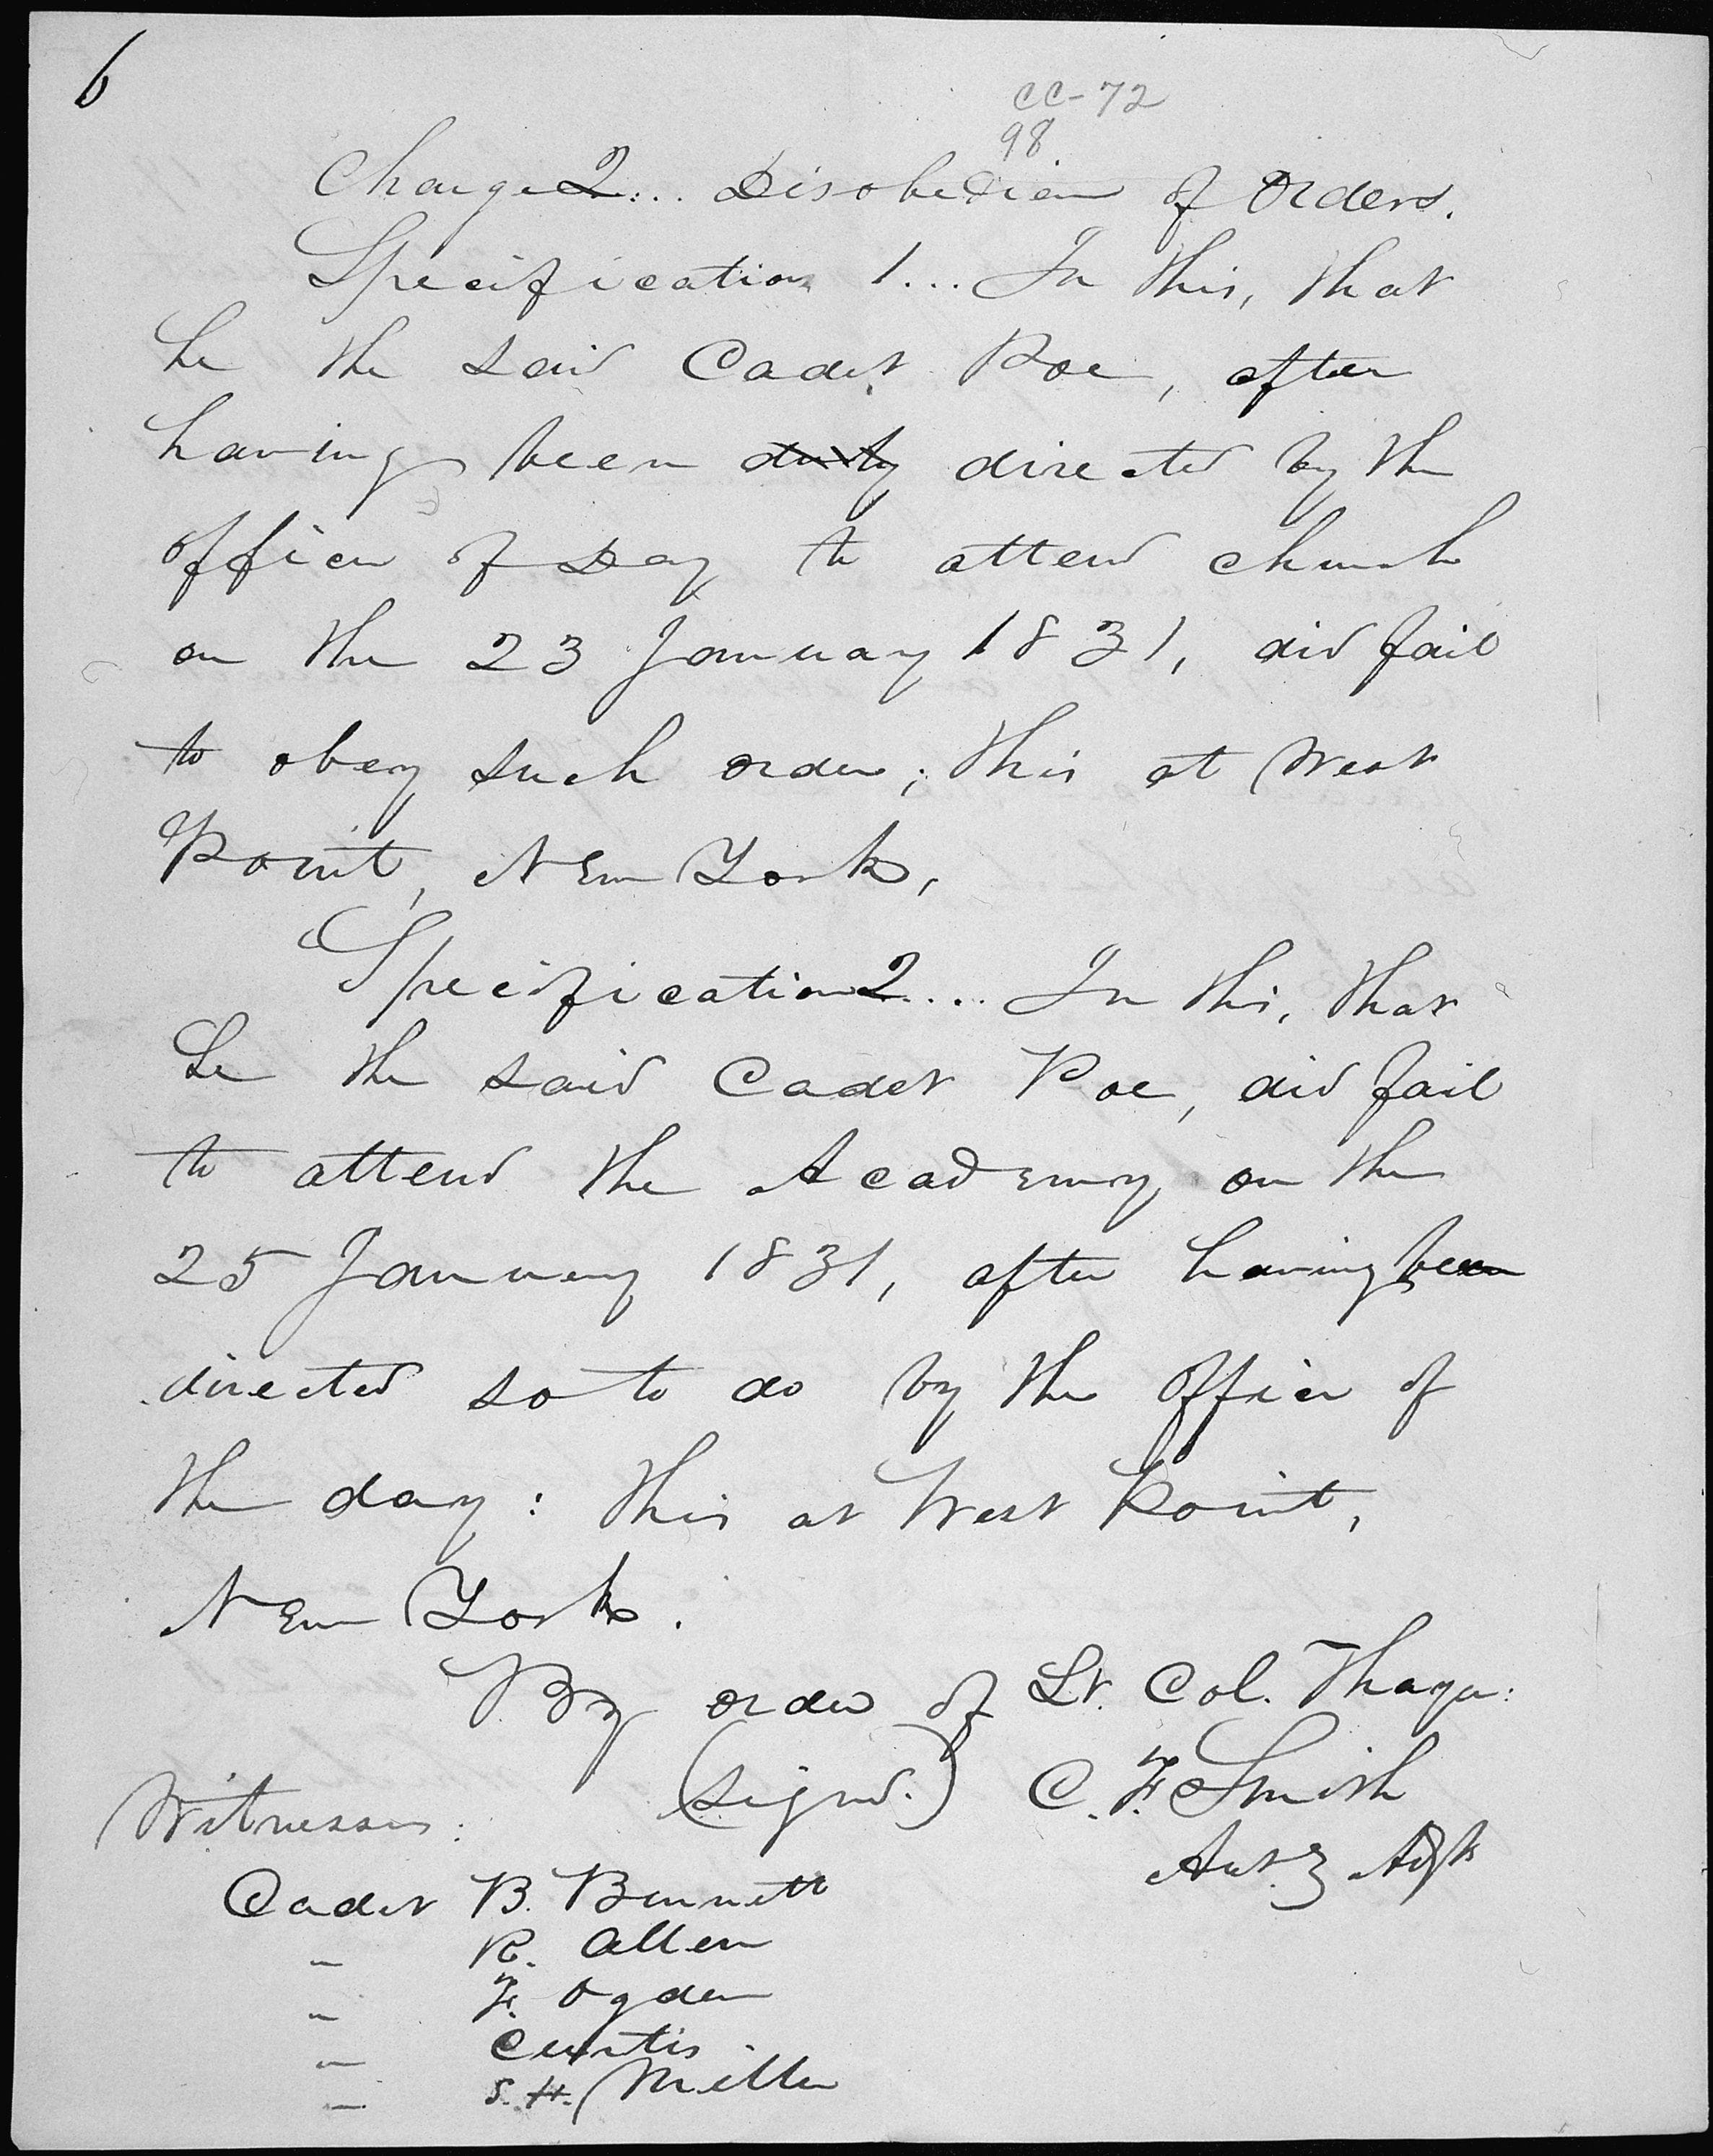 6
CC-72
98
Charge 2... Disobedience of Orders.
Specification 1... In this, that
he the said Cadet Poe, after
having been duly directed by the
officer of Day to attend church
on the 23 January 1831, did fail
to obey such order; this at West
Point, New York,
Specification 2.... In this, that
he the said Cadet Poe, did fail
to attend the Academy on the
25 January 1831, after having been
directed so to do by the Officer of
the day: this at West Point,
New York.
By order of Lt. Col. Thayer:
(Signd.) C. F. Smith
Witnesses:
Adjt
Cadet B. Bennett
" R. Allen
" F. Ogden
" Curtis.
" S. H. Miller